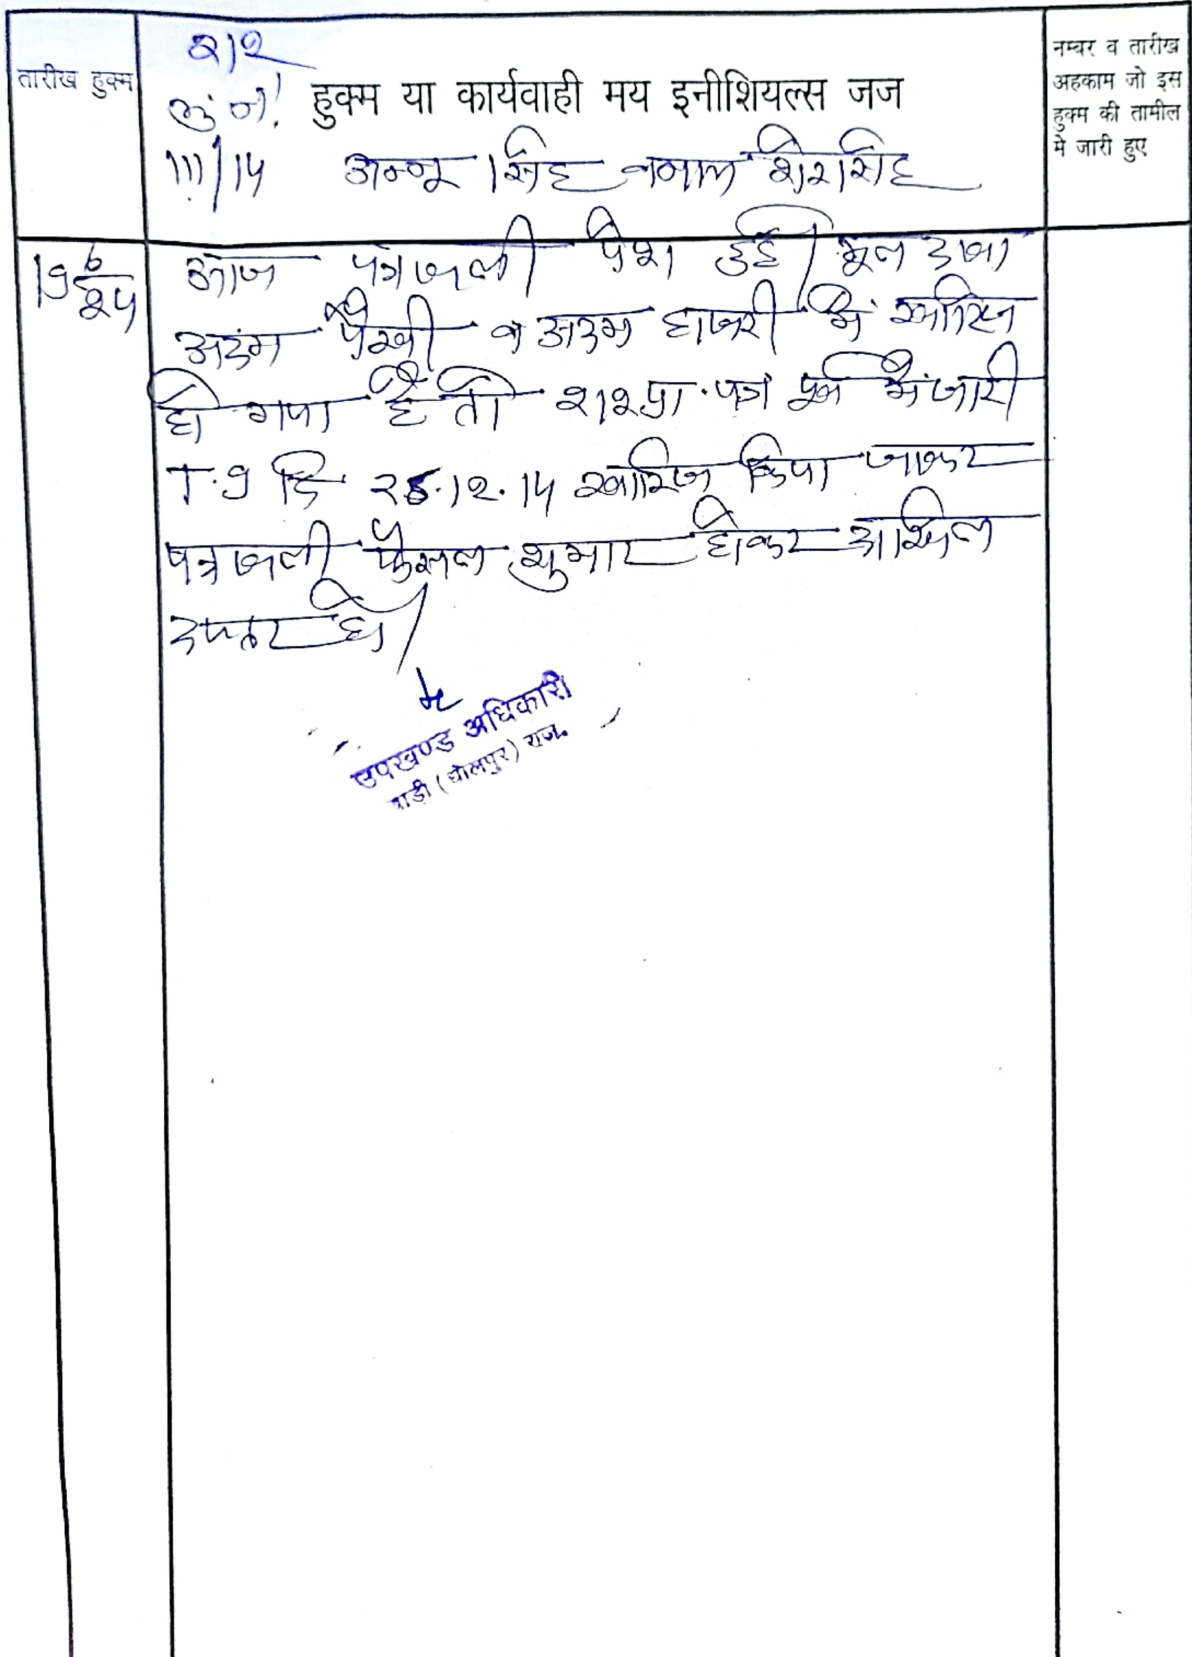 तारीख हुक्म
212
मु.नं.
111/14
हुक्म या कार्यवाही मय इनीशियल्स जज
अन्नू सिंह बनाम शेरसिंह
नम्बर व तारीख
अहकाम जो इस
हुक्म की तामील
मे जारी हुए
19/6/24
आज पत्रावली पेश हुई। मूल दावा
अदम पैरवी व अदम हाजरी में खारिज
हो गया है तो 212 प्रा. पत्र पूर्व में जारी
T.I दि. 12.14 खारिज किया जाकर
पत्रावली फैसल शुमार होकर दाखिल
दफ्तर हो।
उपखण्ड अधिकारी
बाड़ी (धोलपुर) राज.